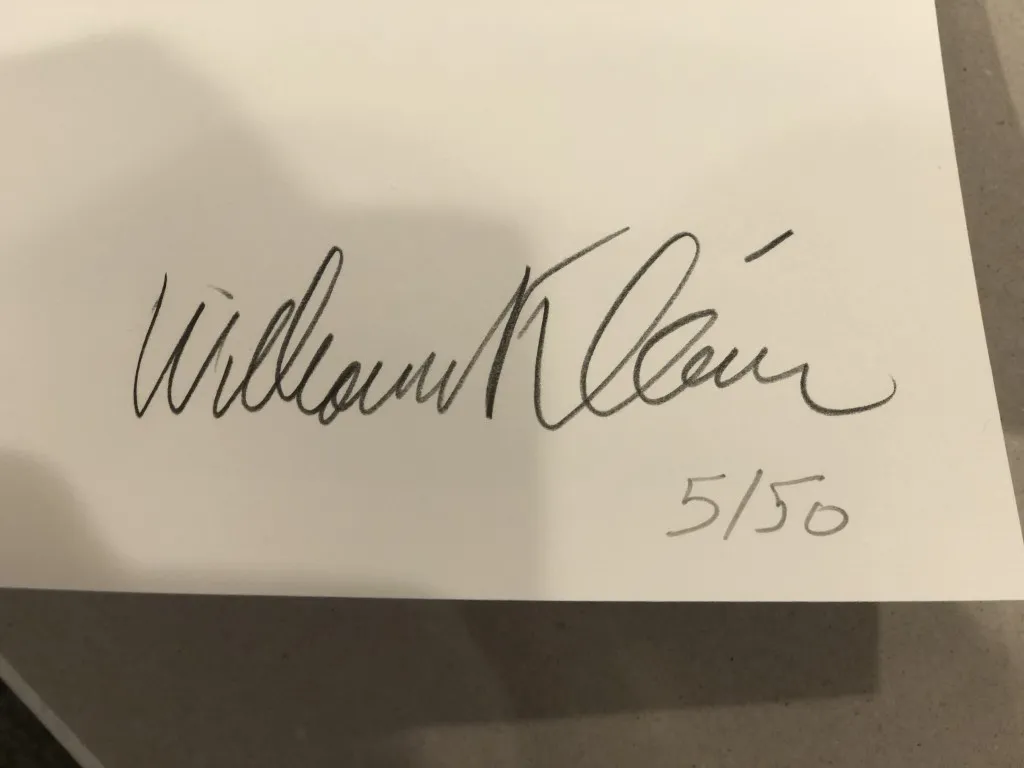 William Klein
5/50